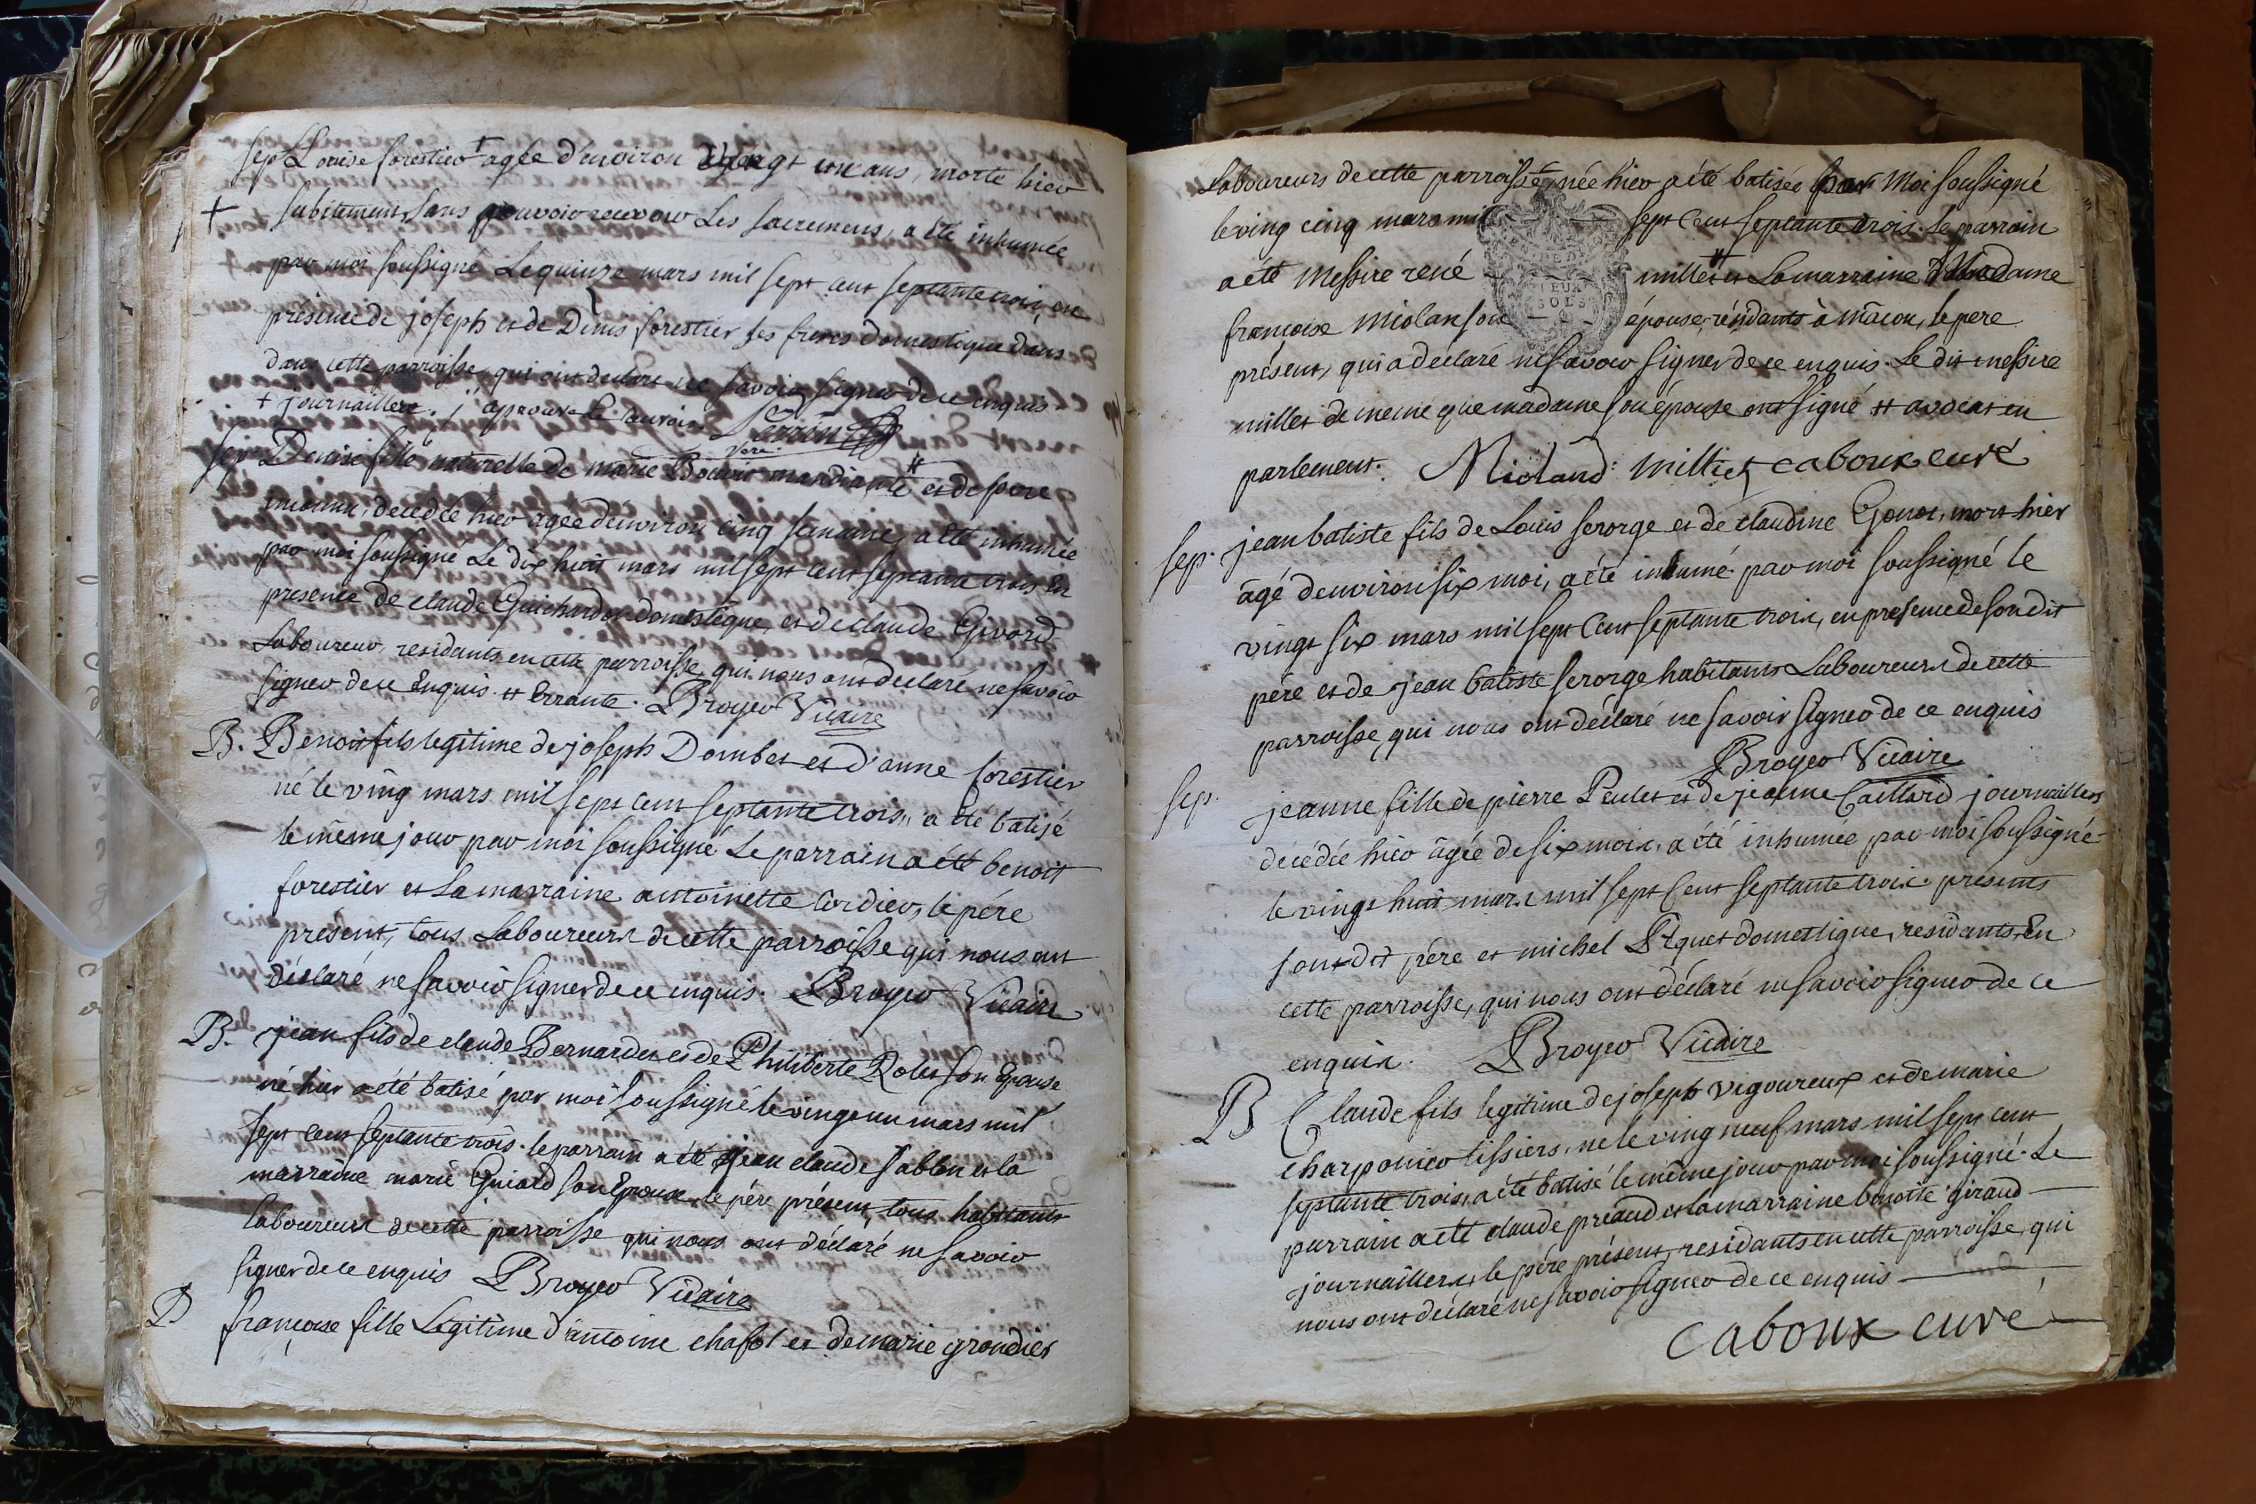 sep Louise forestier + agée d'environ vingt un ans, morte hier
+ subitement, sans pouvoir recevoir Les sacremens, a été inhumée
par moi soussigné Le quinze mars mil sept cent septante trois, en
présence de joseph et de Denis forestier ses freres domestique dans
dans cette parroisse qui ont declaré ne savoir signer de ce enquis
+ journaillere. j'aprouve le
sep Denise fille naturelle de marie mandiante # et de pere
inconnu, decedée hier agée d'environ cinq semaine, a été inhumée
par moi soussigné Le dix huit mars mil sept cent septante trois En
presence de claude Guichardon domestique, et de claude Givord
Laboureur, residants en cette parroisse qui nous ont declaré ne savoir
signer de ce Enquis # Errante. Broyer Vicaire
B. Benoit fils legitime de joseph Dombet et d'anne forestier
né le ving mars mil sept cent septante trois, a été batisé
le même jour par moi soussigné Le parrain a été benoit
forestier et La marraine antoinette Cordier, le pére
présent, tous Laboureurs de cette parroisse qui nous ont
déclaré ne savoir signer de ce enquis. Broyer Vicaire
B. jean fils de claude Bernardet et de Philiberte Rolet son Epouse
né hier a été batisé par moi soussigné le vingt un mars mil
sept cent septante trois. le parrain a été jean claude et la
marraine marie Guiard son Epouse le pére présent, tous habitants
laboureurs de cette parroisse qui nous ont déclaré ne savoir
signer de ce enquis Broyer Vicaire
B françoise fille Légitime d'antoine chafot et de marie grondier
Laboureurs de cette parroisse, née hier a été batisée par Moi soussigné
le ving cinq mars mil sept Cent septante trois. Le parrain
a été Messire rené millet # et La marraine Madame
françoise miolan son épouse, résidants à mâcon, le pere
présent, qui a déclaré ne savoir signer de ce enquis. Le dit messire
millet de meme que madame son épouse ont signé # avocat en
parlement. Mioland: Milliet caboux curé
sep. jean batiste fils de Louis serorge et de claudine Gonot, mort hier
âgé d'environ six moi, a été inhumé par moi soussigné le
vingt six mars mil sept Cent septante trois, en presence de son dit
pére et de jean batiste serorge habitants Laboureurs de cette
parroisse, qui nous ont déclaré ne savoir signer de ce enquis
Broyer Vicaire
sep. jeanne fille de pierre Peulet et de jeanne Caillard journailliers
décédée hier âgée de six mois, a été inhumee par moi soussigné
le vingt huit mars mil sept Cent septante trois. présents
son dit pére et michel Piquet domestique, residants En
cette parroisse, qui nous ont déclaré ne savoir signer de ce
enquis. Broyer Vicaire
B Claude fils legitime de joseph vigoureux et de marie
charponier tissiers, né le ving neuf mars mil sept cent
septante trois, a été batisé le même jour par moi soussigné. Le
parrain a été claude préaud et la marraine benoite giraud
journailliers, le pére présent, residants en cette parroisse, qui
nous ont déclaré ne savoir signer de ce enquis
caboux curé